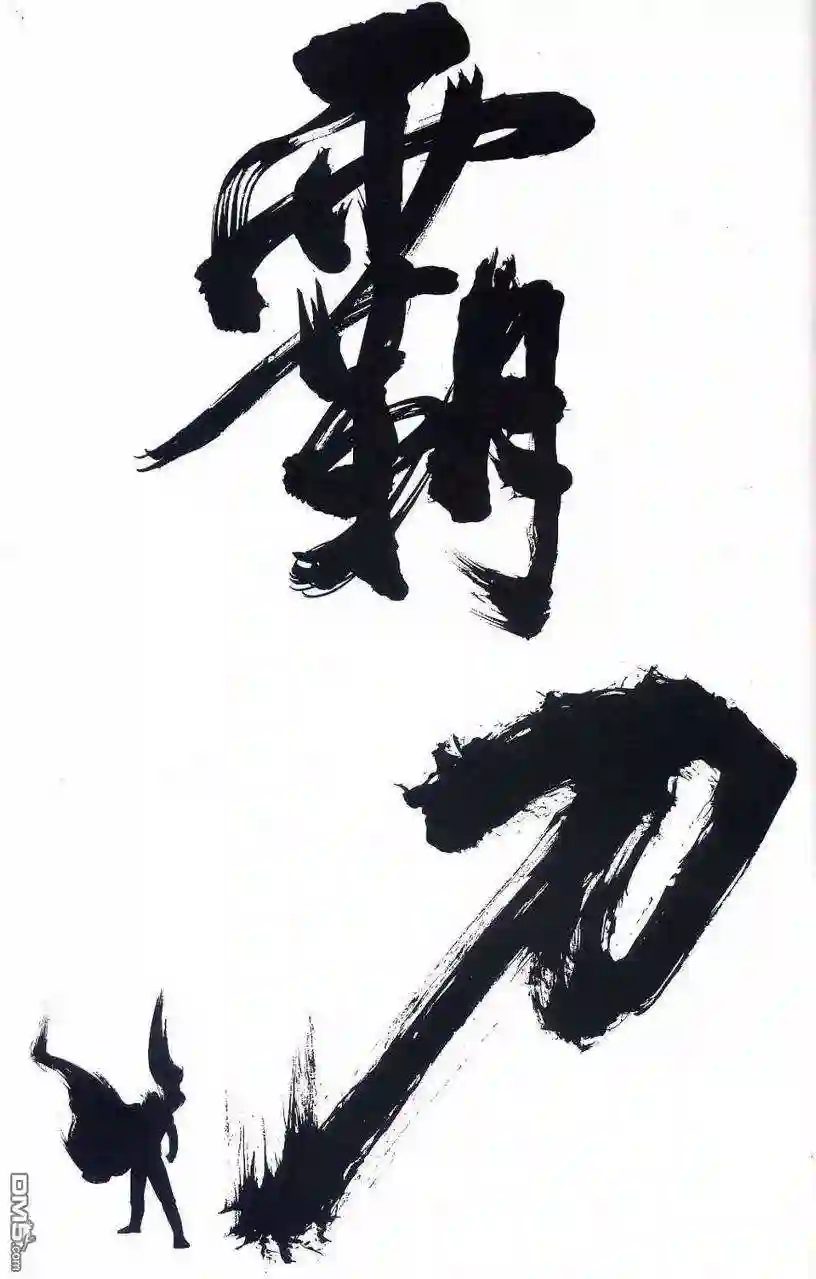 霸刀
DM5.com